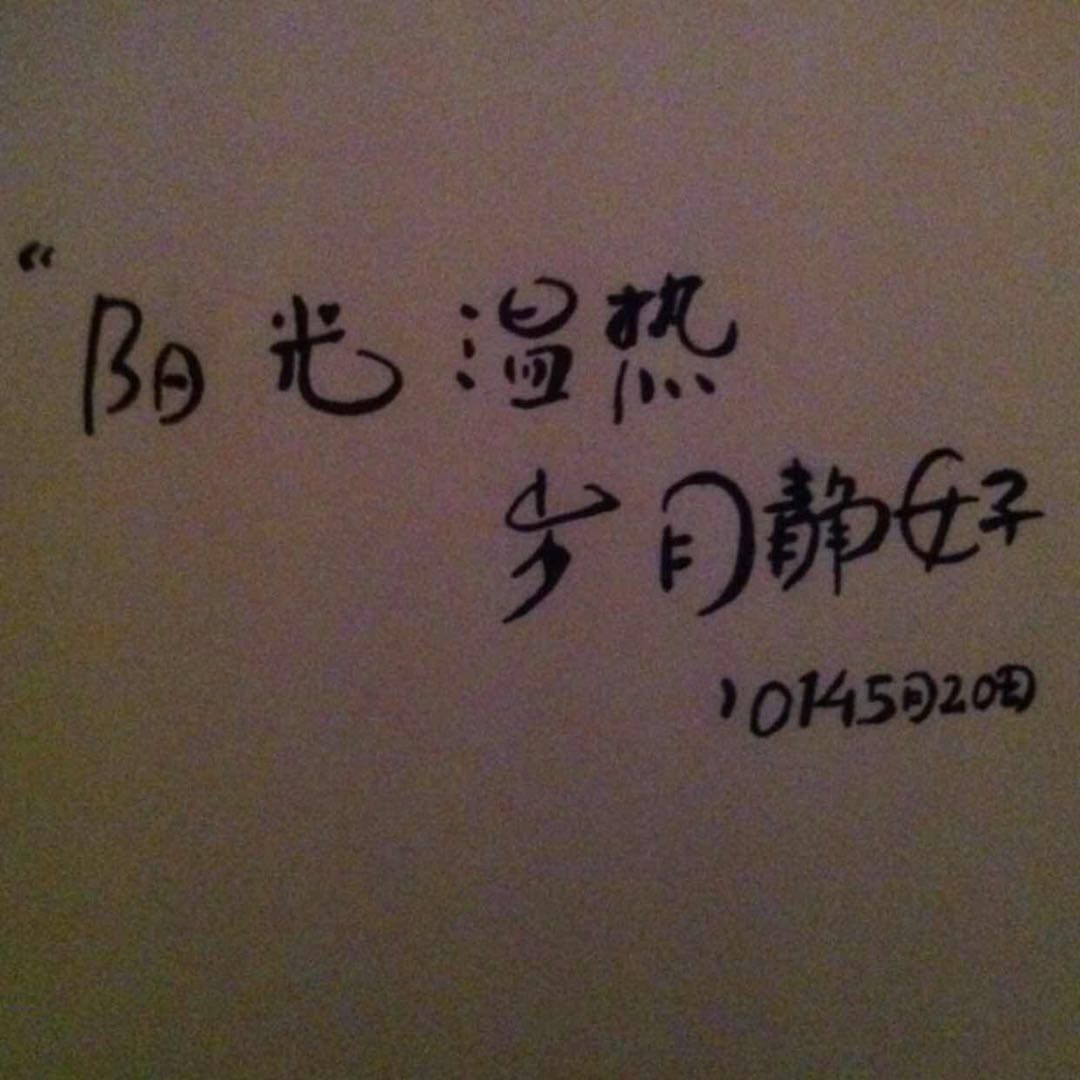 “阳光温热
岁月静好
'0145月20日